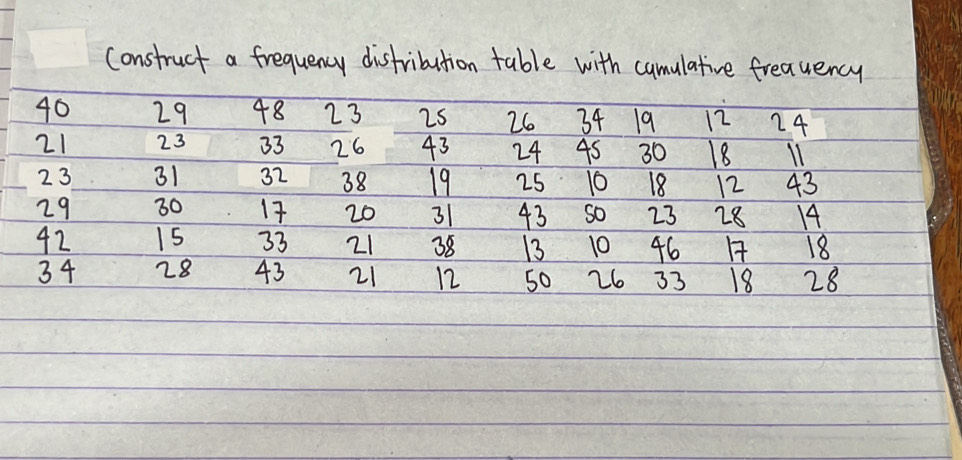 Construct a frequency distribution table with cumulative freauency
40 29 48 23 25 26 34 19 12 24
21 23 33 26 43 24 45 30 18 11
23 31 32 38 19 25 10 18 12 43
29 30 17 20 31 43 50 23 28 14
42 15 33 21 38 13 10 46 17 18
34 28 43 21 12 50 26 33 18 28